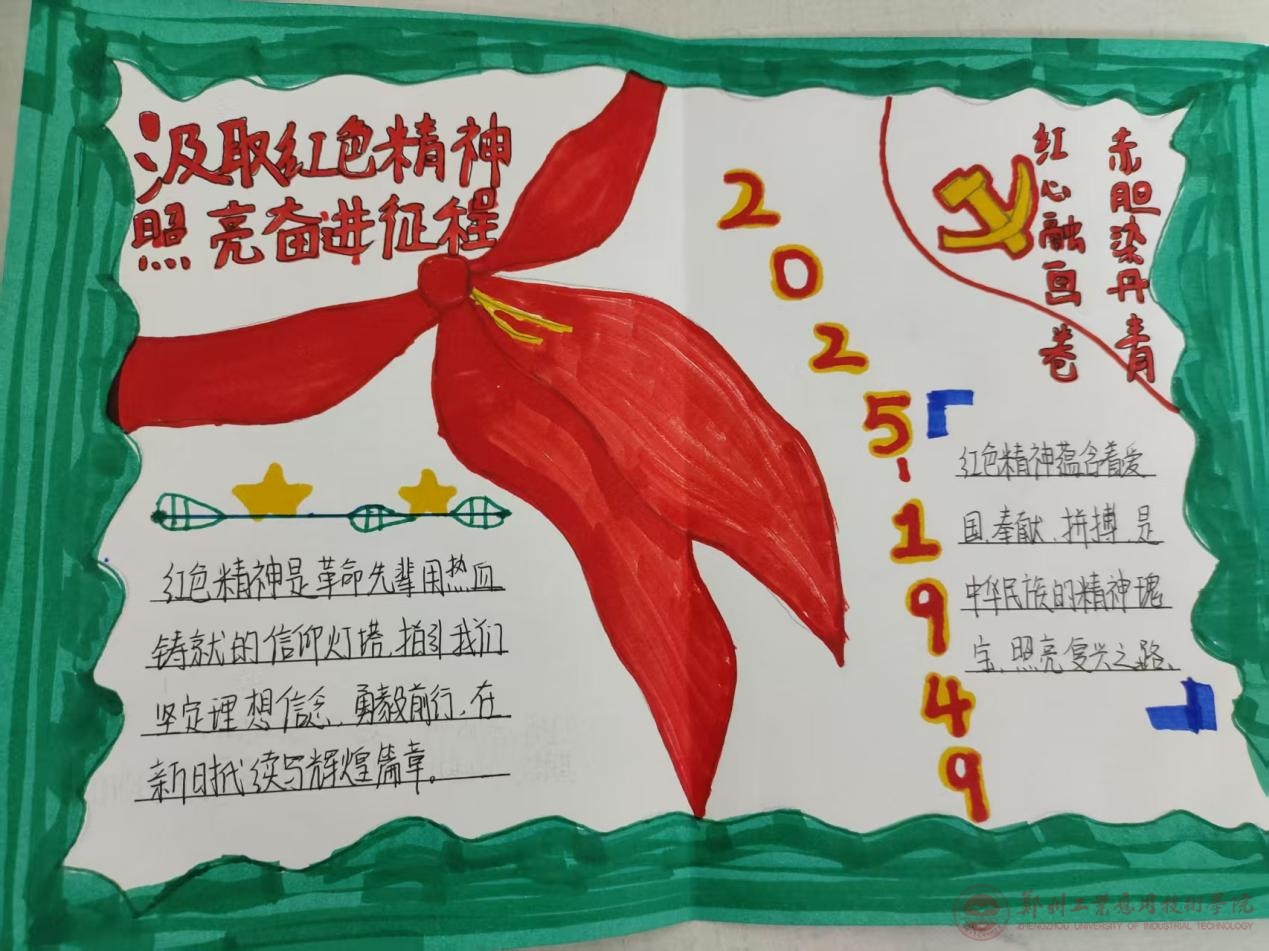 汲取红色精神
照亮奋进征程
红色精神是革命先辈用热血
铸就的信仰灯塔,指引我们
坚定理想信念,勇毅前行,在
新时代续写辉煌篇章。
2025-1949
赤胆染丹青
红心融画卷
红色精神蕴含着爱
国、奉献、拼搏,是
中华民族的精神瑰
宝,照亮复兴之路、
郑州工业应用技术学院
ZHENGZHOU UNIVERSITY OF INDUSTRIAL TECHNOLOGY